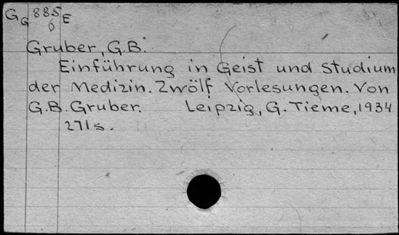 GG 885 E
6
Gruber, G.B.
Einführung in Geist und Studium
der Medizin. Zwölf Vorlesungen. Von
G.B. Gruber. Leipzig, G. Tieme, 1934
271s.